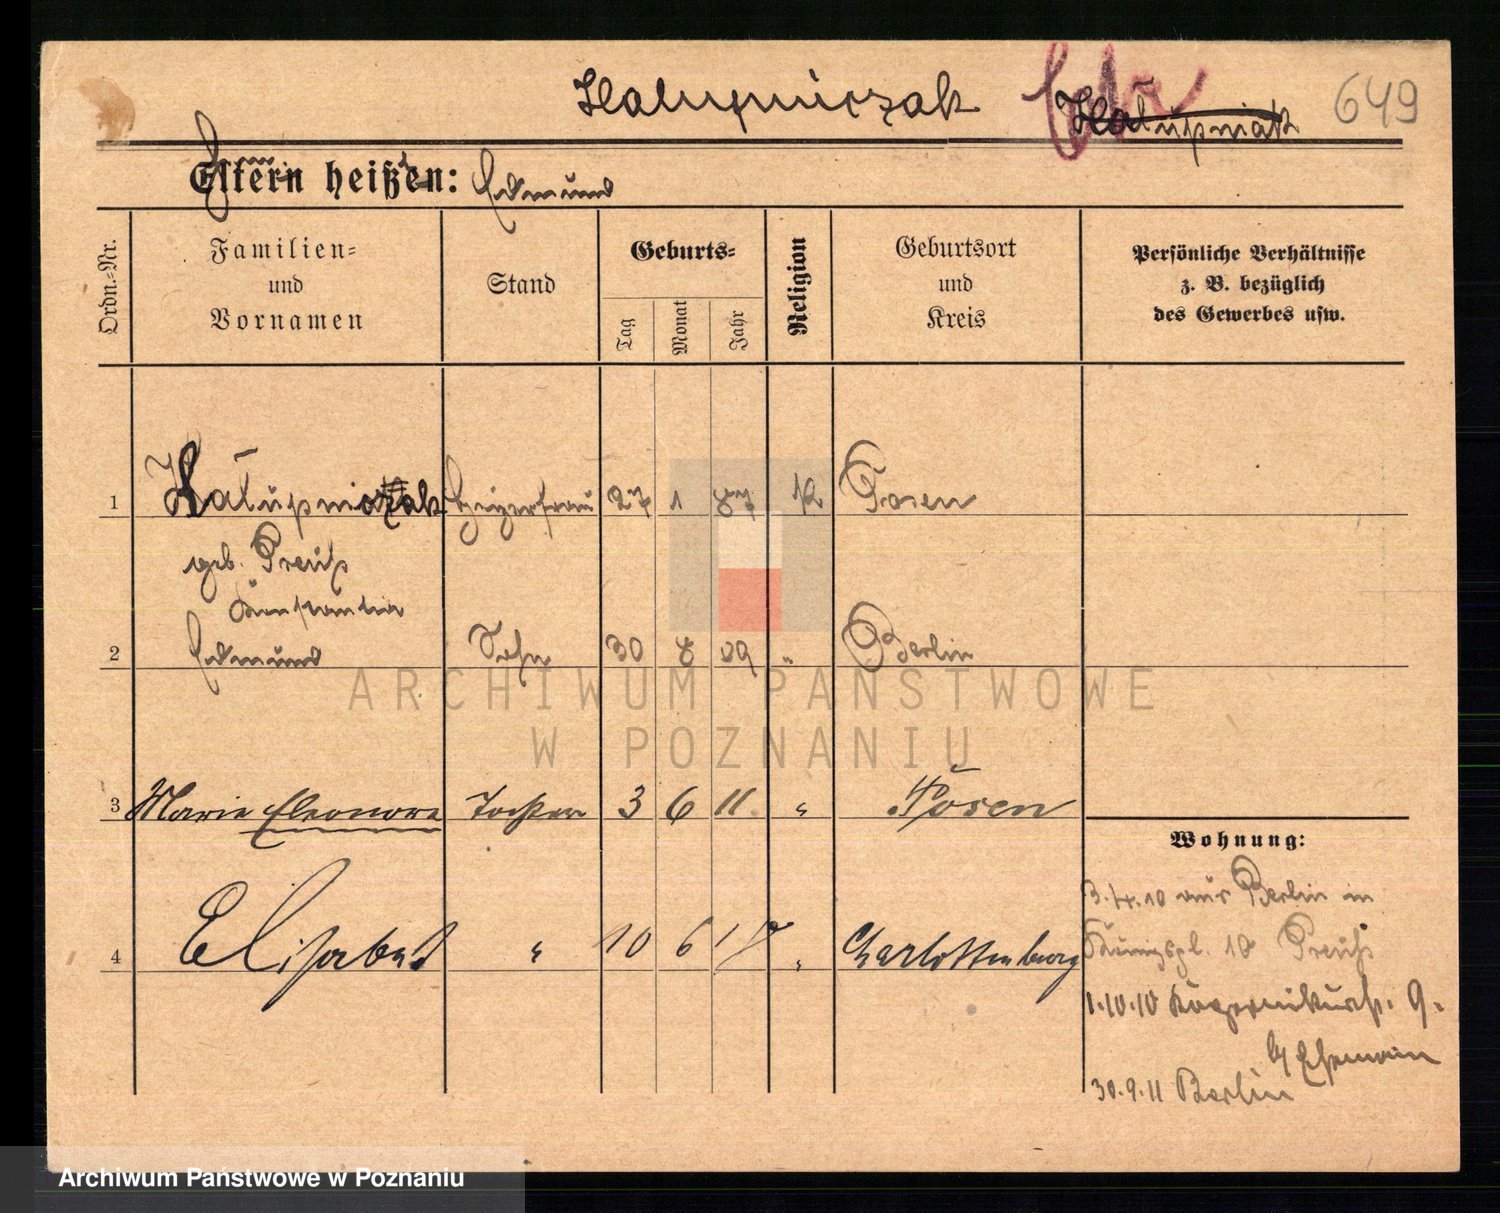 Kałupniczak Kałupniak 649
Eltern heißen: Edmund
Ordn.-Nr.
Familien-
und
Vornamen
Stand
Geburts-
Tag
Monat
Jahr
Religion
Geburtsort
und
Kreis
Persönliche Verhältnisse
z. B. bezüglich
des Gewerbes usw.
1 Kałupniczak Heizersfrau 27 1 87 K Posen
geb. Preuß
Konstantia
2 Edmund Sohn 30 8 09 " Berlin
3 Marie Eleonore Tochter 3 6 11 " Posen
Wohnung:
3.4.10 aus Berlin in
4 Elisabet " 10 6 17 " Charlottenburg
Königspl. 10 Preuß
1.10.10 Kopernikusstr. 9.
b/ Ehemann
30.9.11 Berlin
ARCHIWUM PAŃSTWOWE
W POZNANIU
Archiwum Państwowe w Poznaniu